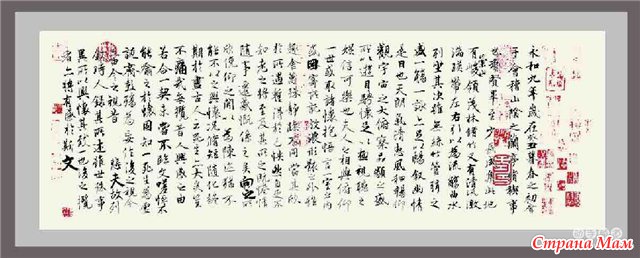 永和九年歲在癸丑暮春之初會
于會稽山陰之蘭亭脩禊事
也羣賢畢至少長咸集此地
有崇山峻領茂林脩竹又有清流激
湍暎帶左右引以為流觴曲水
列坐其次雖無絲竹管弦之
盛一觴一詠亦足以暢叙幽情
是日也天朗氣清惠風和暢仰
觀宇宙之大俯察品類之盛
所以遊目騁懷足以極視聽之
娛信可樂也夫人之相與俯仰
一世或取諸懷抱悟言一室之內
或因寄所託放浪形骸之外雖
趣舍萬殊靜躁不同當其欣
於所遇蹔得於己怏然自足不
知老之將至及其所之既惓情
隨事遷感慨係之矣向之所
欣俛仰之閒以為陳迹猶不
能不以之興懷況脩短隨化終
期於盡古人云死生亦大矣豈
不痛哉每攬昔人興感之由
若合一契未嘗不臨文嗟悼不
能喻之於懷固知一死生為虛
誕齊彭殤為妄作後之視今
亦由今之視昔悲夫故列
敘時人錄其所述雖世殊事
異所以興懷其致一也後之攬
者亦將有感於斯文
Страна Мам